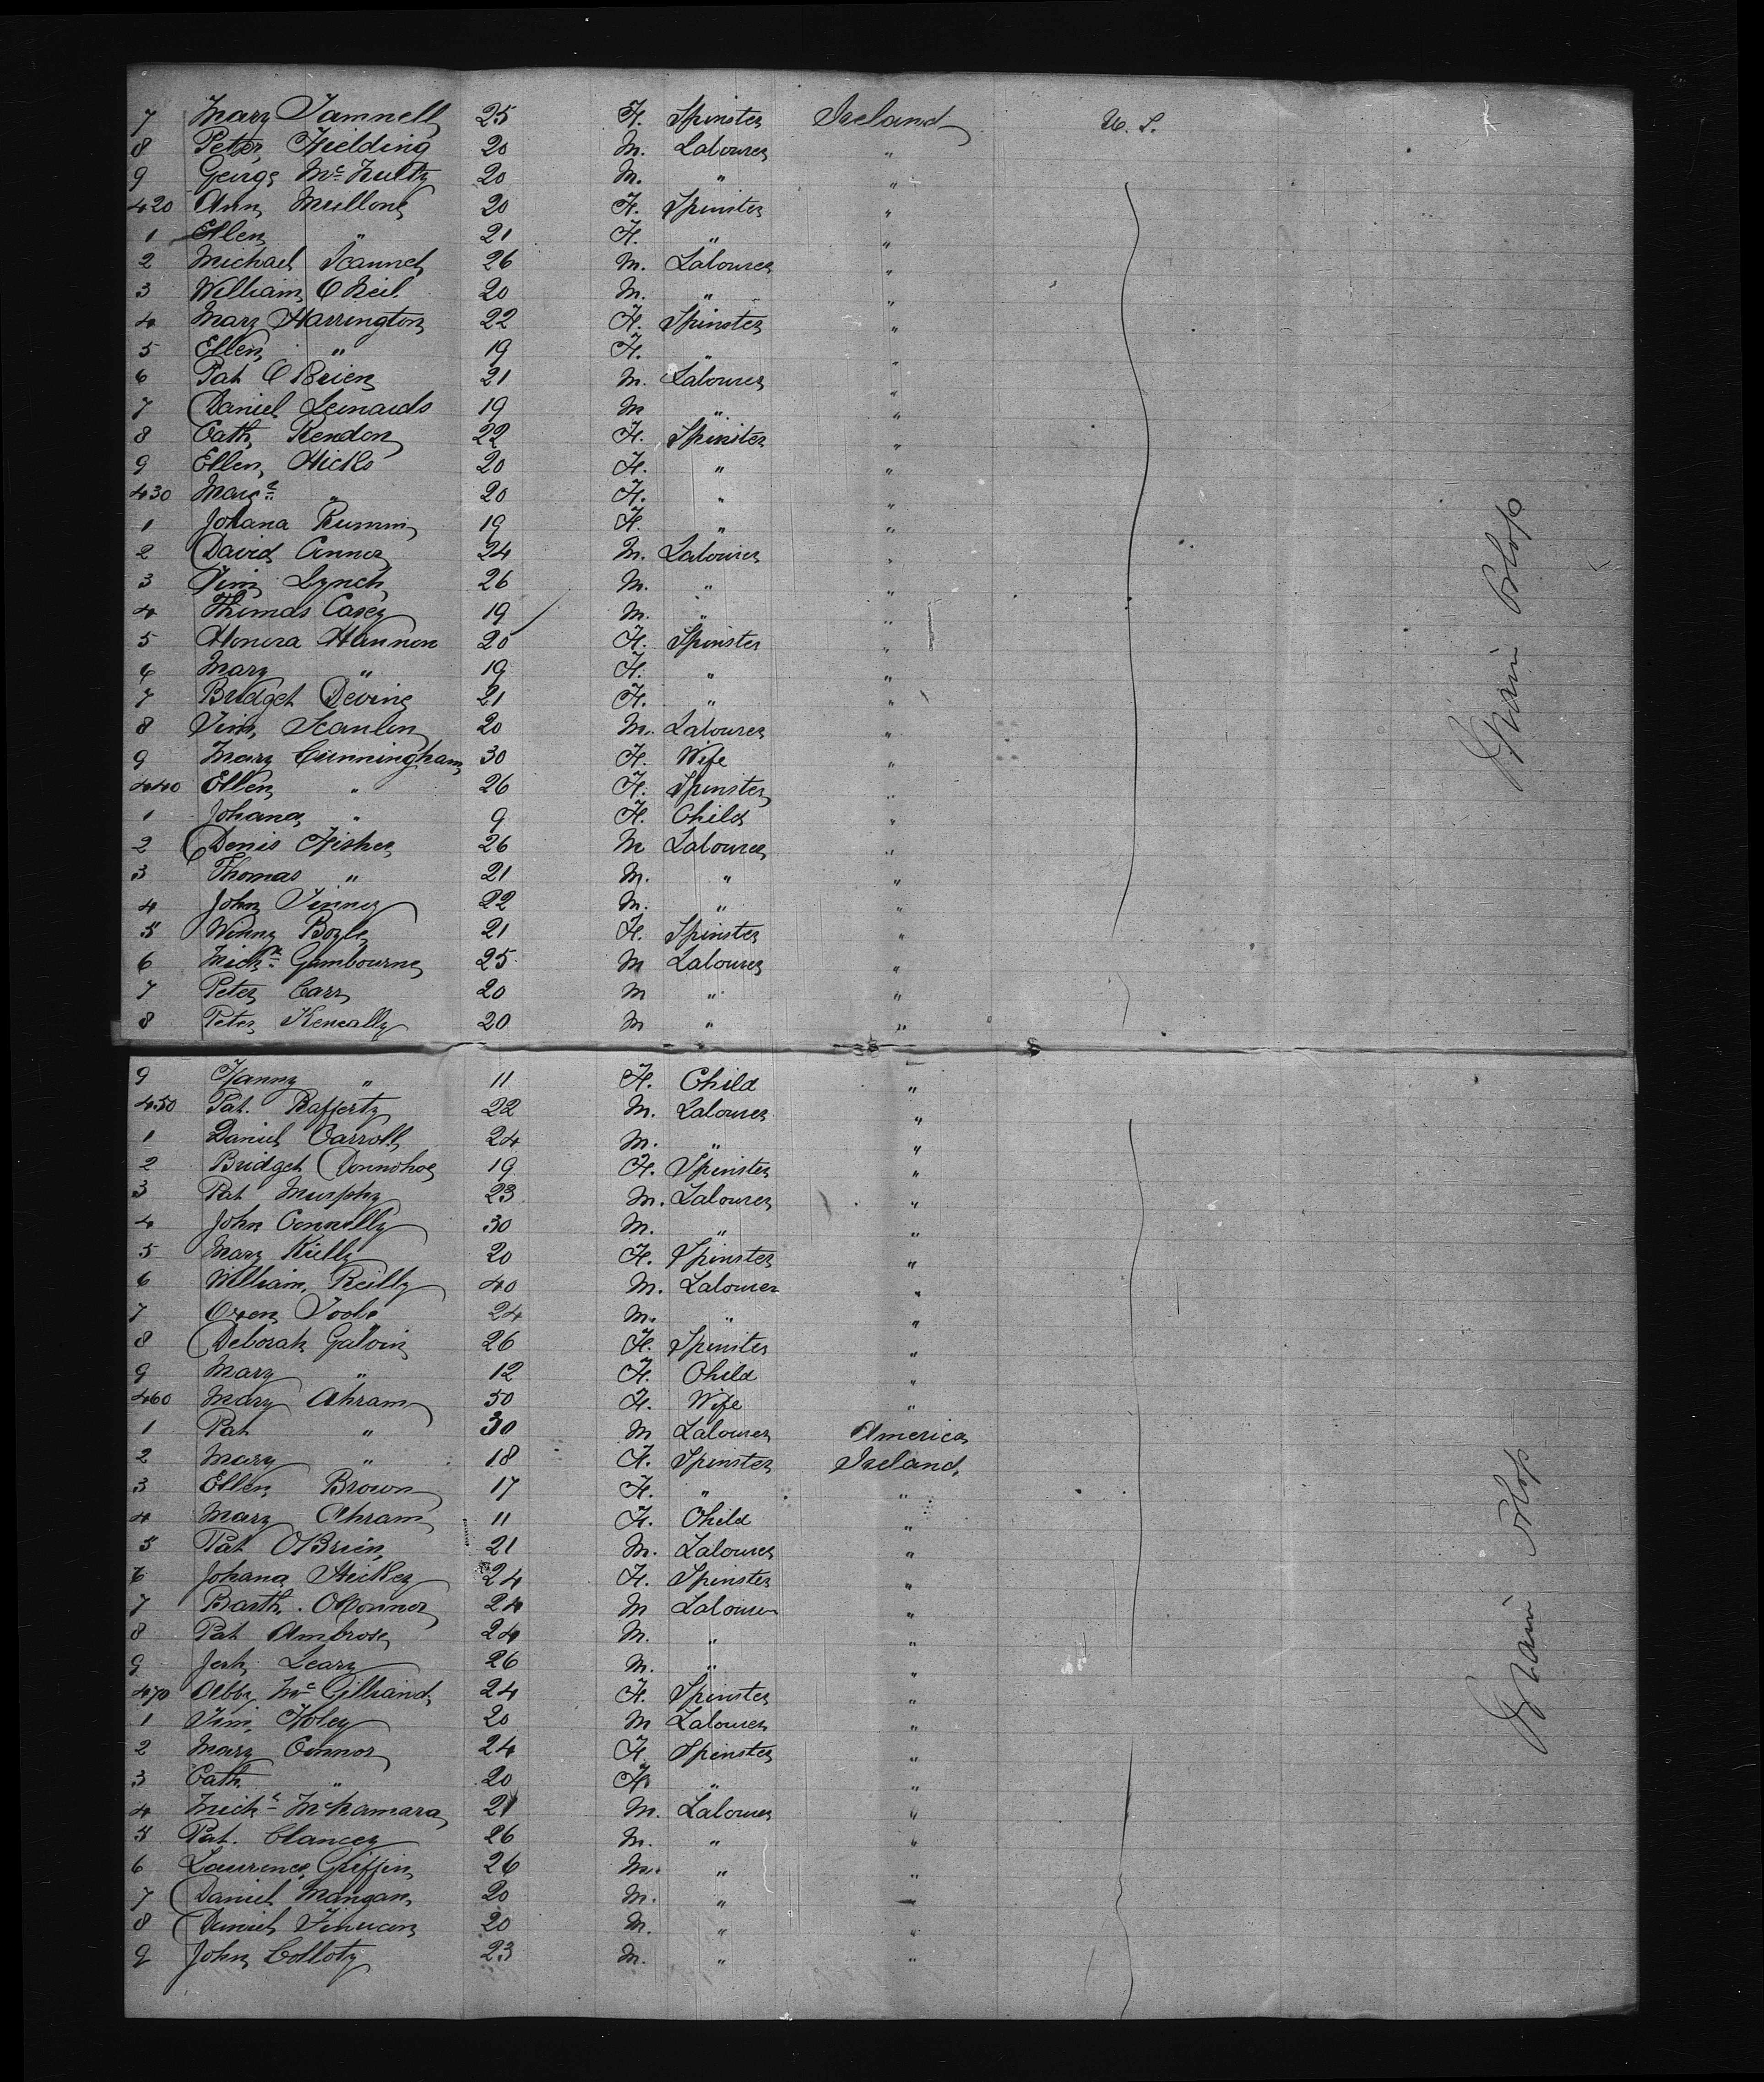 7 Mary Tamnell 25 F. Spinster Ireland U. S.
8 Peter Fielding 20 M. Labourer "
9 George Mc Nulty 20 M. " "
420 Ann Mullone 20 F. Spinster "
1 Ellen " 21 F. " "
2 Michael Scannel 26 M. Labourer "
3 William O Neil 20 M. " "
4 Mary Harrington 22 F. Spinster "
5 Ellen " 19 F. " "
6 Pat O Brien 21 M. Labourer "
7 Daniel Leonards 19 M " "
8 Cath Rendon 22 F. Spinster "
9 Ellen Hicks 20 F. " "
430 Marg " 20 F. " "
1 Johana Rummin 19 F. " "
2 David Connor 24 M. Labourer "
3 Tim Lynch 26 M. " "
4 Thomas Casey 19 M. " "
5 Honora Hannon 20 F. Spinster "
6 Mary " 19 F. " "
7 Bridget Devine 21 F. " "
8 Tim Scanlon 20 M. Labourer "
9 Mary Cunningham 30 F. Wife "
440 Ellen " 26 F. Spinster "
1 Johana " 9 F. Child "
2 Denis Fisher 26 M Labourer "
3 Thomas " 21 M. " "
4 John Finney 22 M. " "
5 Winny Boyle 21 F. Spinster "
6 Mich Gambourne 25 M Labourer "
7 Peter Carr 20 M " "
8 Peter Keneally 20 M " "
9 Fanny " 11 F. Child "
450 Pat. Rafferty 22 M. Labourer "
1 Daniel Carroll 24 M. " "
2 Bridget Donnohoe 19 F. Spinster "
3 Pat Murphy 23 M. Labourer "
4 John Connelly 30 M. " "
5 Mary Kielly 20 F. Spinster "
6 William Reilly 40 M. Labourer "
7 Owen Toole 24 M. " "
8 Deborah Galvin 26 F. Spinster "
9 Mary " 12 F. Child "
460 Mary Ahram 50 F. Wife "
1 Pat " 30 M Labourer America
2 Mary " 18 F. Spinster Ireland
3 Ellen Brown 17 F. " "
4 Mary Ahram 11 F. Child "
5 Pat OBrien 21 M. Labourer "
6 Johana Hickey 24 F. Spinster "
7 Barth. OConnor 24 M Labourer "
8 Pat Ambrose 24 M. " "
9 Jerh Leary 26 M. " "
470 Abby Mc Gilliand 24 F. Spinster "
1 Tim Foley 20 M Labourer "
2 Mary Connor 24 F. Spinster "
3 Cath " 20 F " "
4 Mich McNamara 21 M. Labourer "
5 Pat. Clancey 26 M. " "
6 Laurence Griffin 26 M. " "
7 Daniel Mangan 20 M. " "
8 Daniel Finucan 20 M. " "
9 John Colloty 23 M. " "
Main Orlop
Main Orlop